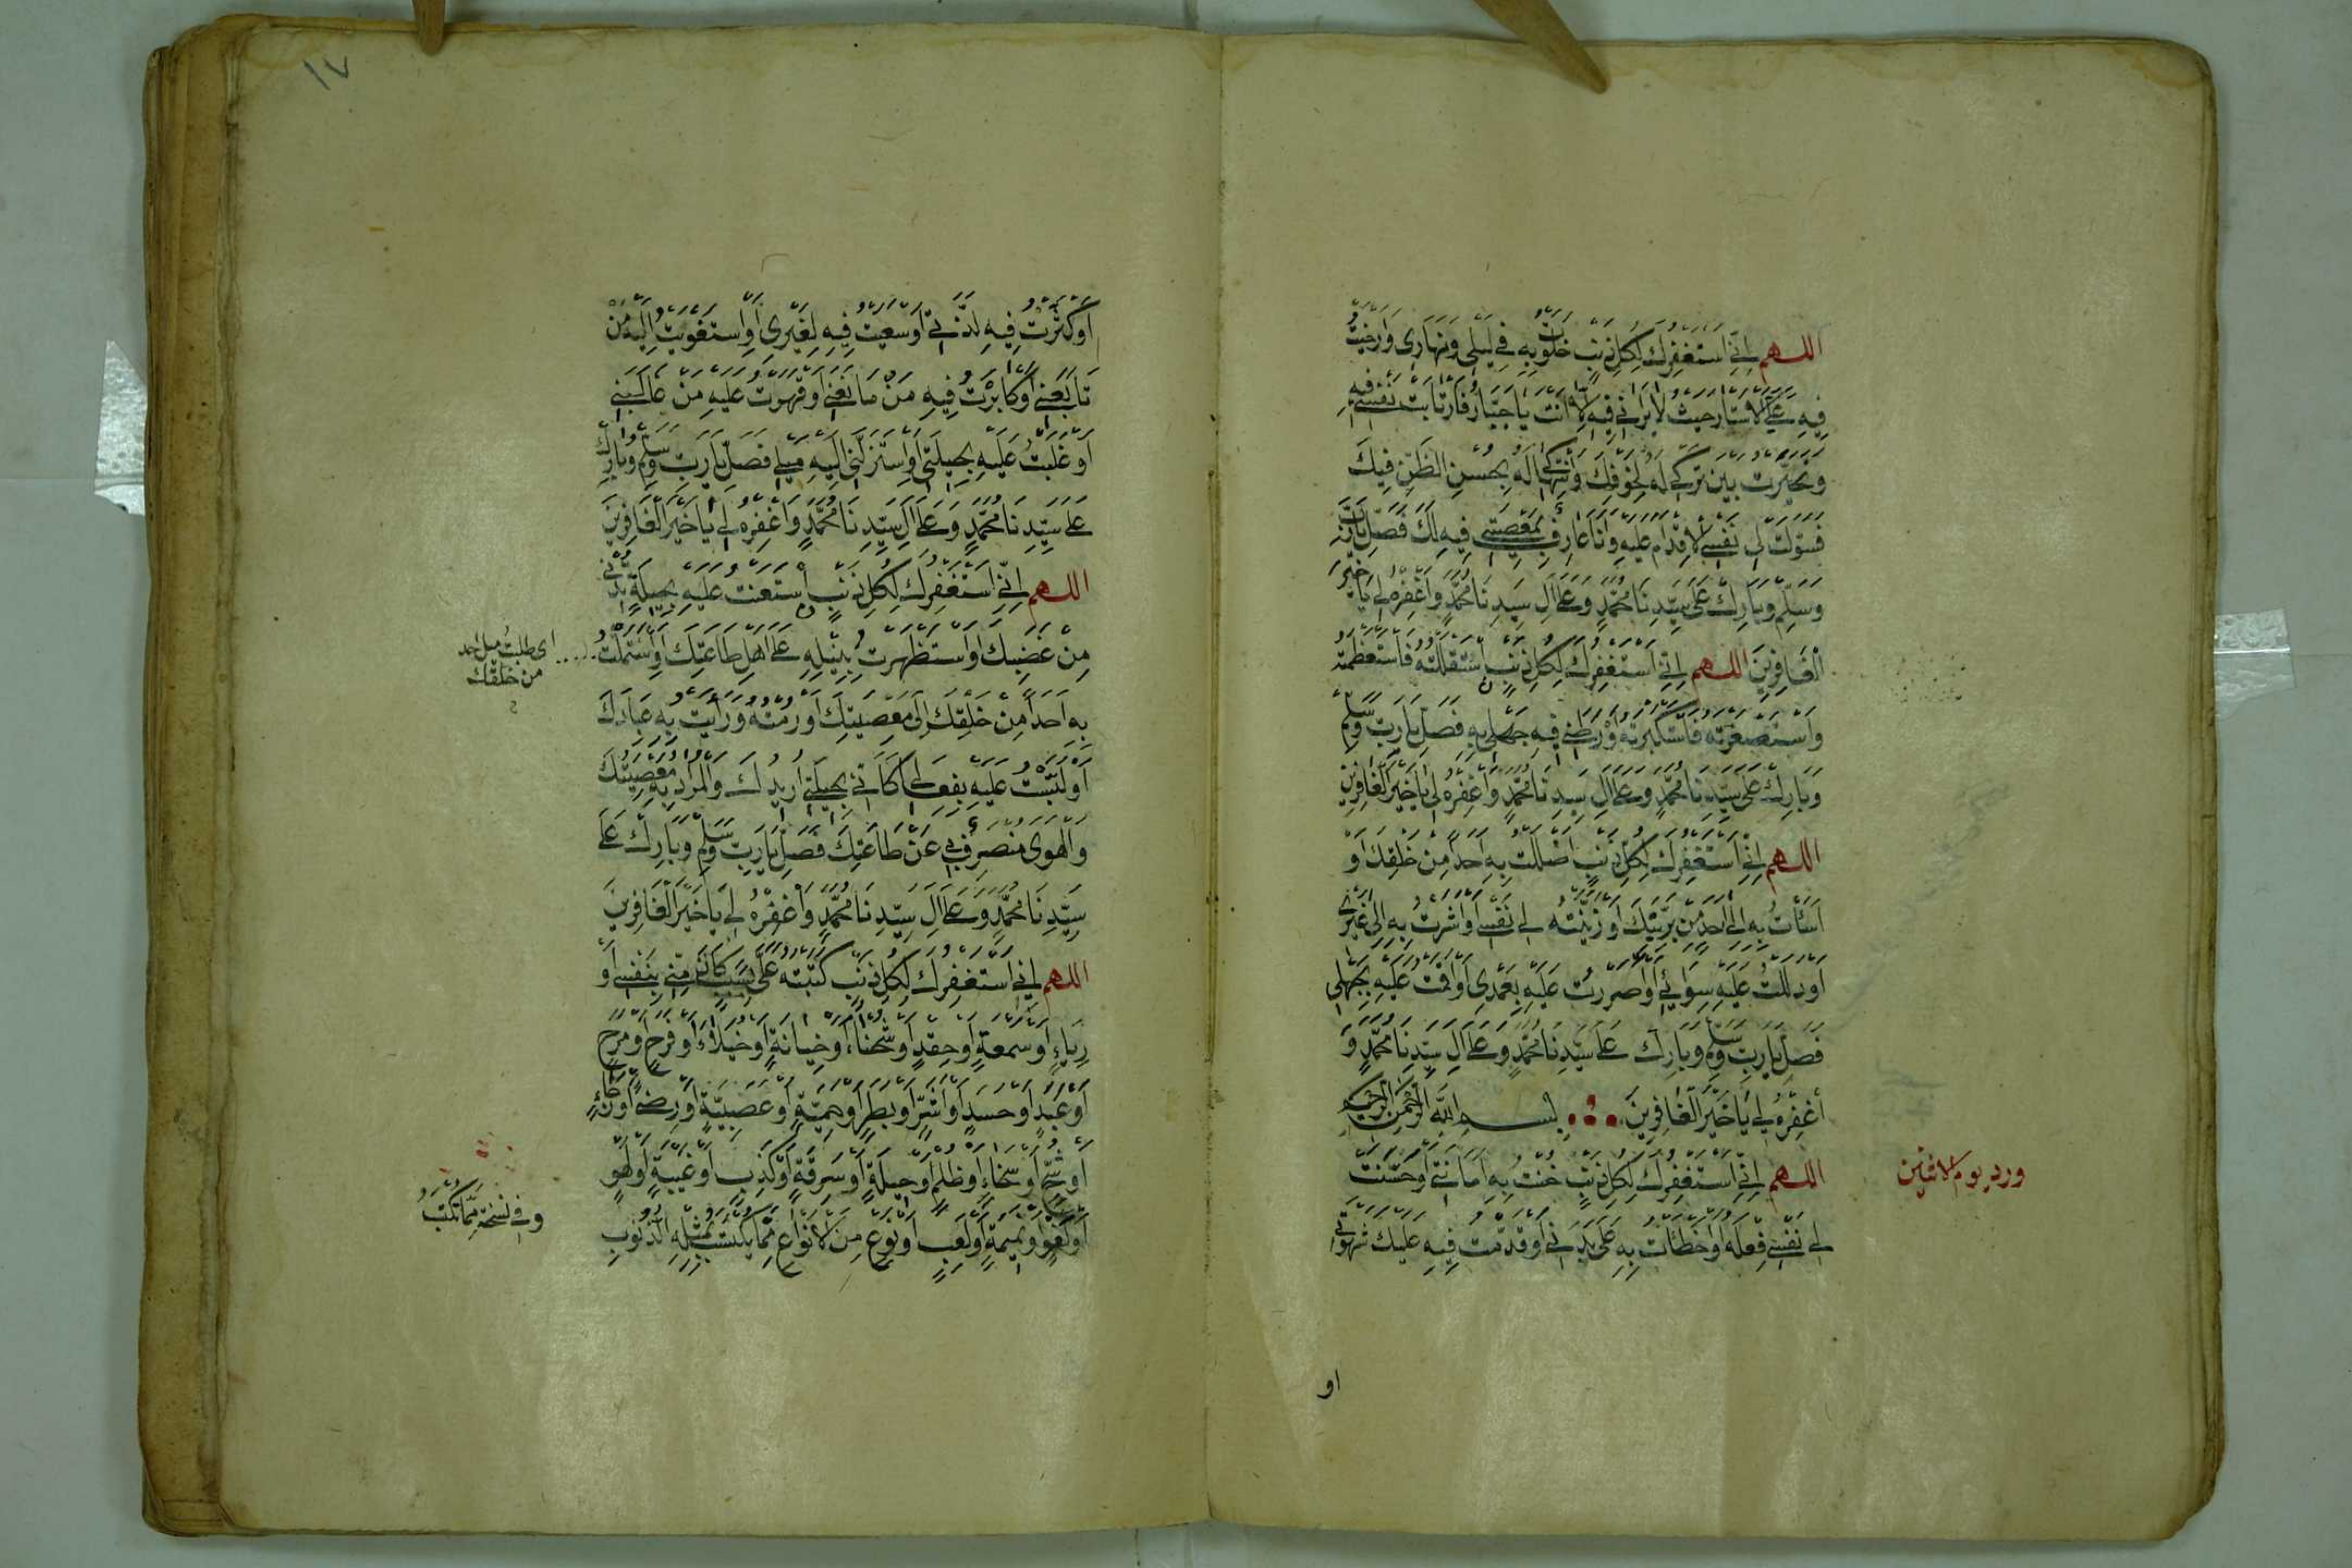 اللهم اِنِّي اَسْتَغْفِرُكَ لِكُلِّ ذَنْبٍ خَلَوْتُ بِهِ فِي لَيْلِي وَنَهَارِي وَاَرْخَيْتُ
فِيهِ عَلَيَّ الْاَسْتَارَ حَيْثُ لَا يَرَانِي فِيهِ اِلَّا اَنْتَ يَا جَبَّارُ فَارْتَابَتْ نَفْسِي فِيهِ
وَتَحَيَّرْتُ بَيْنَ تَرْكِي لَهُ لِخَوْفِكَ وَانْتِهَاكِي لَهُ بِحُسْنِ الظَّنِّ فِيكَ
فَسَوَّلَتْ لِي نَفْسِي الْاِقْدَامَ عَلَيْهِ وَاَنَا عَارِفٌ بِمَعْصِيَتِي فِيهِ لَكَ فَصَلِّ يَا رَبِّ
وَسَلِّمْ وَبَارِكْ عَلَى سَيِّدِنَا مُحَمَّدٍ وَعَلَى اٰلِ سَيِّدِنَا مُحَمَّدٍ وَاغْفِرْهُ لِي يَا خَيْرَ
الْغَافِرِينَ اللهم اِنِّي اَسْتَغْفِرُكَ لِكُلِّ ذَنْبٍ اسْتَقْلَلْتُهُ فَاسْتَعْظَمْتَهُ
وَاسْتَصْغَرْتُهُ فَاسْتَكْبَرْتَهُ وَوَرَّطَنِي فِيهِ جَهْلِي بِهِ فَصَلِّ يَا رَبِّ وَسَلِّمْ
وَبَارِكْ عَلَى سَيِّدِنَا مُحَمَّدٍ وَعَلَى اٰلِ سَيِّدِنَا مُحَمَّدٍ وَاغْفِرْهُ لِي يَا خَيْرَ الْغَافِرِينَ
اللهم اِنِّي اَسْتَغْفِرُكَ لِكُلِّ ذَنْبٍ اَضْلَلْتُ بِهِ اَحَدًا مِنْ خَلْقِكَ اَوْ
اَسَأْتُ بِهِ اِلَى اَحَدٍ مِنْ بَرِيَّتِكَ اَوْ زَيَّنَتْهُ لِي نَفْسِي اَوْ اَشَرْتُ بِهِ اِلَى غَيْرِي
اَوْ دَلَلْتُ عَلَيْهِ سِوَائِي اَوْ اَصْرَرْتُ عَلَيْهِ بِعَمْدِي اَوْ اَقَمْتُ عَلَيْهِ بِجَهْلِي
فَصَلِّ يَا رَبِّ وَسَلِّمْ وَبَارِكْ عَلَى سَيِّدِنَا مُحَمَّدٍ وَعَلَى اٰلِ سَيِّدِنَا مُحَمَّدٍ وَ
اغْفِرْهُ لِي يَا خَيْرَ الْغَافِرِينَ بسم الله الرحمن الرحيم
ورد يوم الاثنين
اللهم اِنِّي اَسْتَغْفِرُكَ لِكُلِّ ذَنْبٍ خُنْتُ بِهِ اَمَانَتِي اَوْ حَسَّنَتْ
لِي نَفْسِي فِعْلَهُ اَوْ اَخْطَأْتُ بِهِ عَلَى بَدَنِي اَوْ قَدَّمْتُ فِيهِ عَلَيْكَ شَهْوَتِي
او
١٧
اَوْ كَثَّرْتُ فِيهِ لَذَّتِي اَوْ سَعَيْتُ فِيهِ لِغَيْرِي اَوِ اسْتَغْوَيْتُ اِلَيْهِ مَنْ
تَابَعَنِي اَوْ كَابَرْتُ فِيهِ مَنْ مَانَعَنِي اَوْ قَهَرْتُ عَلَيْهِ مَنْ غَالَبَنِي
اَوْ غَلَبْتُ عَلَيْهِ بِحِيلَتِي اَوِ اسْتَزَلَّنِي اِلَيْهِ مَيْلِي فَصَلِّ يَا رَبِّ وَسَلِّمْ وَبَارِكْ
عَلَى سَيِّدِنَا مُحَمَّدٍ وَعَلَى اٰلِ سَيِّدِنَا مُحَمَّدٍ وَاغْفِرْهُ لِي يَا خَيْرَ الْغَافِرِينَ
اللهم اِنِّي اَسْتَغْفِرُكَ لِكُلِّ ذَنْبٍ اسْتَعَنْتُ عَلَيْهِ بِحِيلَةٍ تُدْنِي
مِنْ غَضَبِكَ اَوِ اسْتَظْهَرْتُ بِنَيْلِهِ عَلَى اَهْلِ طَاعَتِكَ اَوِ اسْتَمَلْتُ
اى طلبت ميل احد
من خلقك
بِهِ اَحَدًا مِنْ خَلْقِكَ اِلَى مَعْصِيَتِكَ اَوْ رُمْتُهُ وَرَاءَيْتُ بِهِ عِبَادَكَ
اَوْ لَبَّسْتُ عَلَيْهِ بِفِعَالِي كَاَنِّي بِحِيلَتِي اُرِيدُكَ وَالْمُرَادُ بِهِ مَعْصِيَتُكَ
وَالْهَوَى مُنْصَرِفٌ بِي عَنْ طَاعَتِكَ فَصَلِّ يَا رَبِّ وَسَلِّمْ وَبَارِكْ عَلَى
سَيِّدِنَا مُحَمَّدٍ وَعَلَى اٰلِ سَيِّدِنَا مُحَمَّدٍ وَاغْفِرْهُ لِي يَا خَيْرَ الْغَافِرِينَ
اللهم اِنِّي اَسْتَغْفِرُكَ لِكُلِّ ذَنْبٍ كَتَبْتَهُ عَلَيَّ بِسَبَبِ كَانَ مِنِّي بِنَفْسِي اَوْ
رِيَاءٍ اَوْ سُمْعَةٍ اَوْ حِقْدٍ اَوْ شَحْنَاءَ اَوْ خِيَانَةٍ اَوْ خُيَلَاءَ اَوْ فَرَحٍ اَوْ مَرَحٍ
اَوْ حَسَدٍ اَوْ اَشَرٍ اَوْ بَطَرٍ اَوْ حَمِيَّةٍ اَوْ عَصَبِيَّةٍ اَوْ رِضَاءٍ اَوْ رَجَاءٍ
اَوْ شُحٍّ اَوْ سَخَاءٍ اَوْ ظُلْمٍ اَوْ حِيلَةٍ اَوْ سَرِقَةٍ اَوْ كَذِبٍ اَوْ غِيبَةٍ اَوْ لَهْوٍ
اَوْ لَغْوٍ اَوْ نَمِيمَةٍ اَوْ لَعِبٍ اَوْ نَوْعٍ مِنَ الْاَنْوَاعِ مِمَّا يُكْتَسَبُ بِمِثْلِهِ الذُّنُوبُ
وفي نسخة مما تكتب